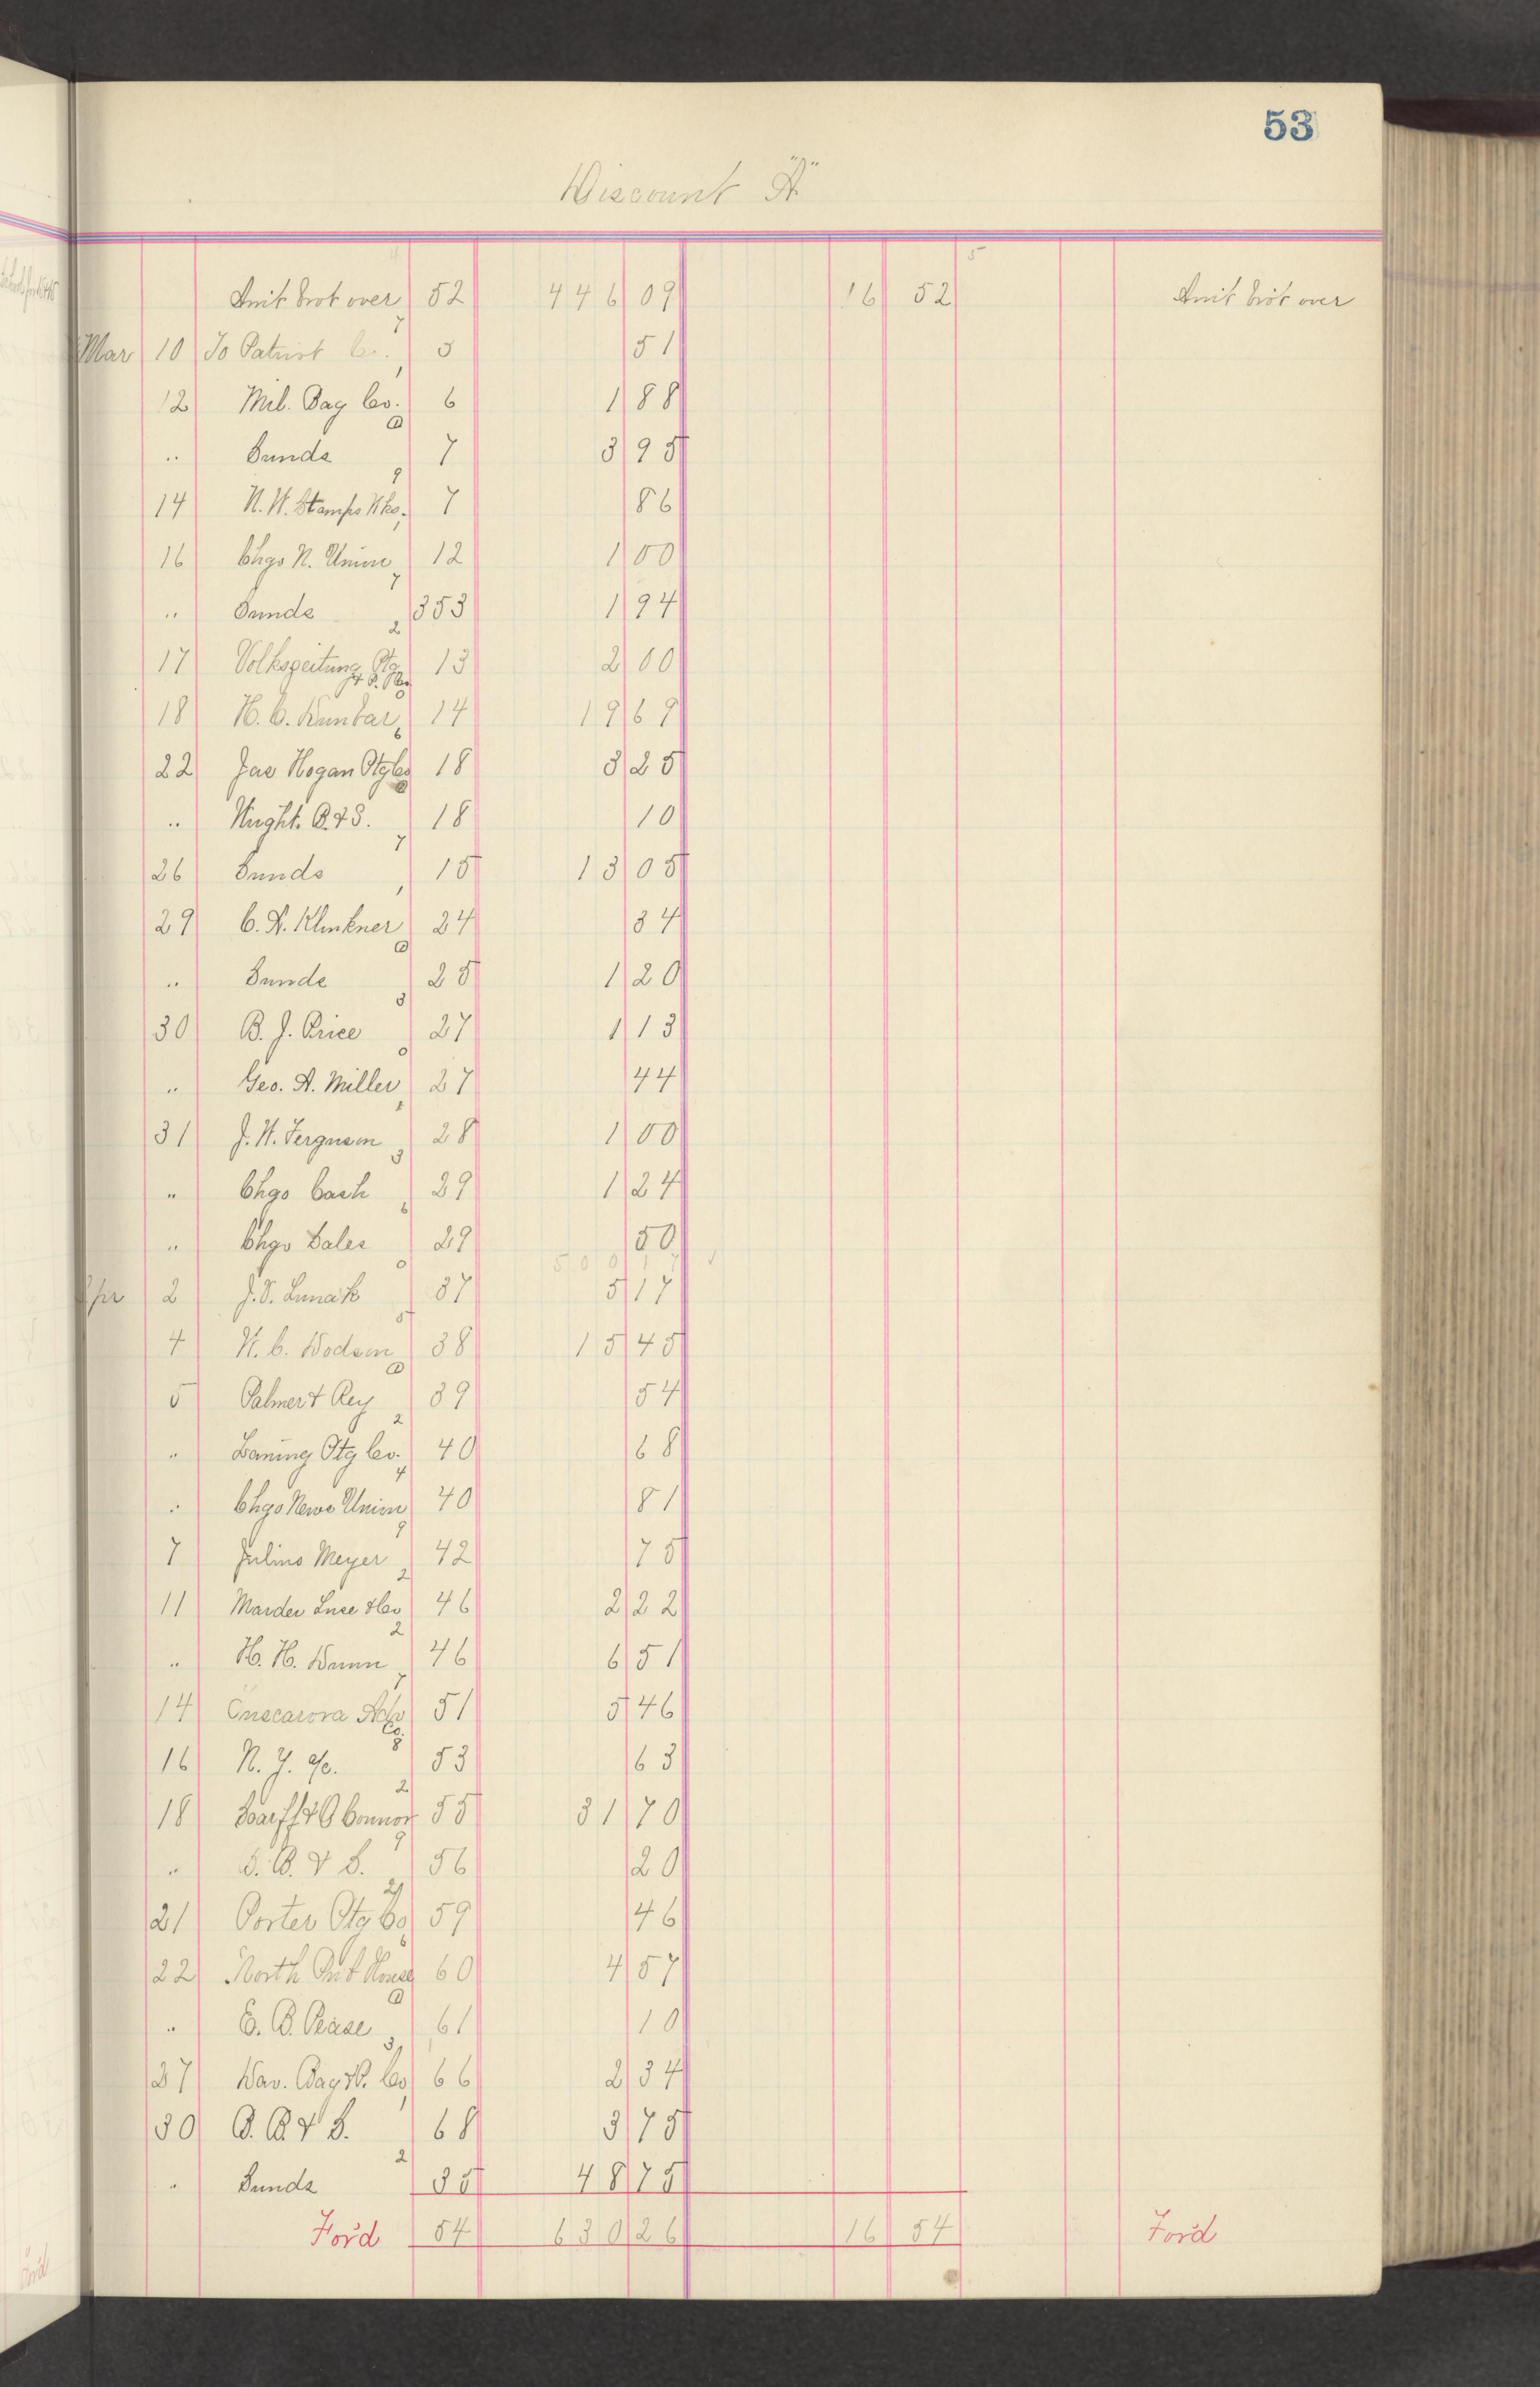 53
Discount "A"
Amt brot over 52 446 09 16 52 Amt brot over
Mar 10 To Patriot Co. 5 51
12 Mil. Bag Co. 6 1 88
" Sunds 7 3 95
14 N. W. Stamps Wks. 7 86
16 Chgo N. Union 12 1 00
" Sunds 353 1 94
17 Volkszeitung Ptg & P. Co 13 2 00
18 H. C. Dunbar 14 19 69
22 Jas Hogan Ptg Co 18 3 25
" Wright. B. & S. 18 10
26 Sunds 15 13 05
29 C. A. Klinkner 24 34
" Sunds 25 1 20
30 B. J. Price 27 1 13
" Geo. A. Miller 27 44
31 J. W. Ferguson 28 1 00
" Chgo Cash 29 1 24
" Chgo Sales 29 50
500 17
Apr 2 J. V. Lunak 37 5 17
4 W. C. Dodson 38 15 45
5 Palmer & Rey 39 54
" Laning Ptg Co. 40 68
" Chgo News Union 40 81
7 Julius Meyer 42 75
11 Marder Luse & Co 46 2 22
" H. H. Dunn 46 6 51
14 Tuscarora Adv Co. 51 5 46
16 N. Y. a/c. 53 63
18 Scarff & O'Connor 55 31 70
" S. B. & S. 56 20
21 Porter Ptg Co 59 46
22 North Pub House 60 4 57
" E. B. Pease 61 10
27 Dav. Bag & P. Co 66 2 34
30 B. B. & S. 68 3 75
" Sunds 35 48 75
For'd 54 630 26 16 54 For'd